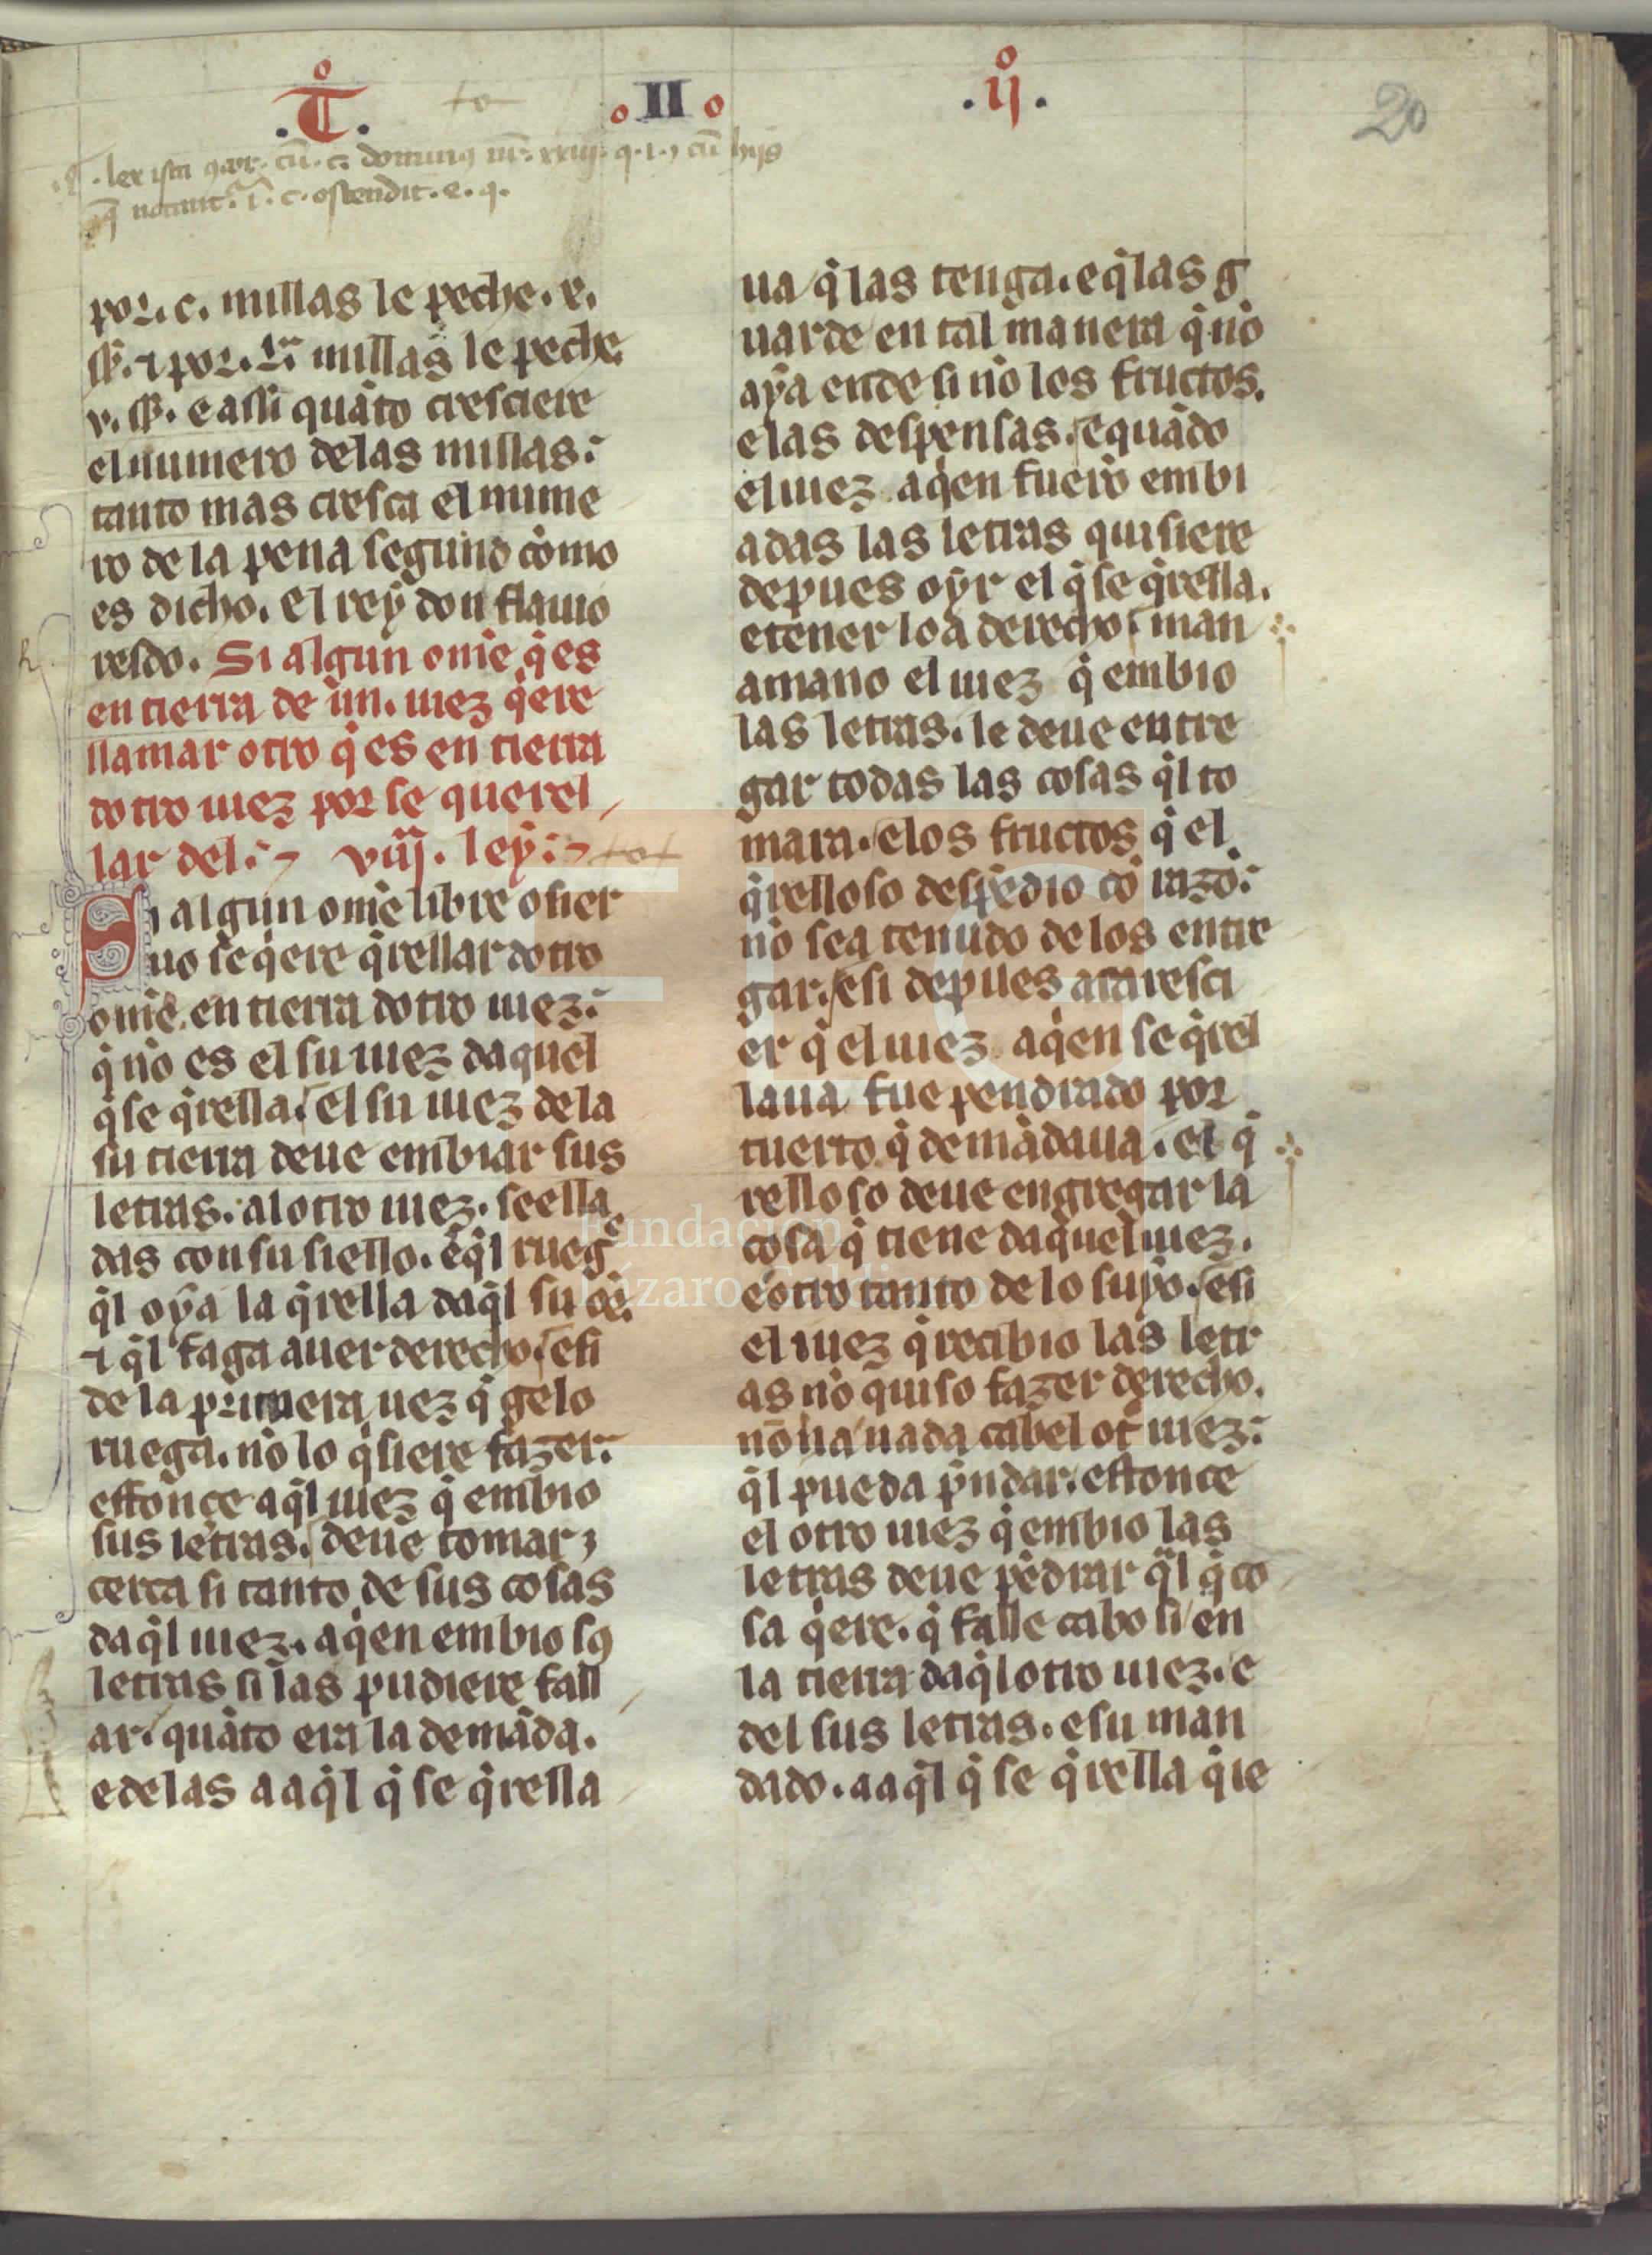 .T.º
ºIIº
.ijº.
20
por .c. millas le peche .v.
ss. ⁊ por .lª. millas le peche
v. ss. e assi quãto cresciere
el numero delas millas:
tanto mas cresca el nume
ro de la pena segund cõmo
es dicho. El rey don flauio
resdo. Si algun om̃e q̃ es
en tierra de un. iuez q̃ere
llamar otro q̃ es en tierra
dotro iuez por se querel
lar del: viij. ley:
Si algun om̃e libre o sier
uo se q̃ere q̃rellar dotro
om̃e en tierra dotro iuez:
q̃ nõ es el su iuez daquel
q̃ se q̃rella. el su iuez de la
su tierra deue embiar sus
letras. al otro iuez. seella
das con su siello. e q̃l rueg
q̃l oya la q̃rella daq̃l su õe.
⁊ q̃l faga auer derecho. esi
de la primera uez q̃ gelo
ruega. nõ lo q̃siere fazer:
estonçe aq̃l iuez q̃ embio
sus letras. deue tomar
cerca si tanto de sus cosas
daq̃l iuez. aq̃en embio sꝯ
letras si las pudiere fall
ar. quãto era la demãda.
e delas a aq̃l q̃ se q̃rella
ua q̃ las tenga. e q̃ las g
uarde en tal manera q̃ nõ
aya ende si nõ los fructos.
e las despensas. e quãdo
el iuez aq̃en fuerõ embi
adas las letras quisiere
depues oyr el q̃ se q̃rella.
e tener lo a derecho. man
a mano el iuez q̃ embio
las letras. le deue entre
gar todas las cosas q̃l to
mara. e los fructos q̃ el
q̃relloso despẽdio cõ razõ:
nõ sea tenudo de los entre
gar. esi depues aparesci
er q̃ el iuez aq̃en se q̃rel
laua fue pendrado por
tuerto q̃ demãdaua. el q̃
relloso deue engregar la
cosa q̃ tiene daquel iuez.
e otro tanto de lo suyo. esi
el iuez q̃ recibio las letr
as nõ quiso fazer derecho.
nõ ua nada cabel ot̃ iuez:
q̃l pueda p̃ndar. estonce
el otro iuez q̃ embio las
letras deue pẽdrar q̃l q̃ co
sa q̃ere. q̃ falle cabo si en
la tierra daq̃l otro iuez. e
del sus letras. e su man
dado. a aq̃l q̃ se q̃rella q̃ re
Fundación
Lázaro Galdiano